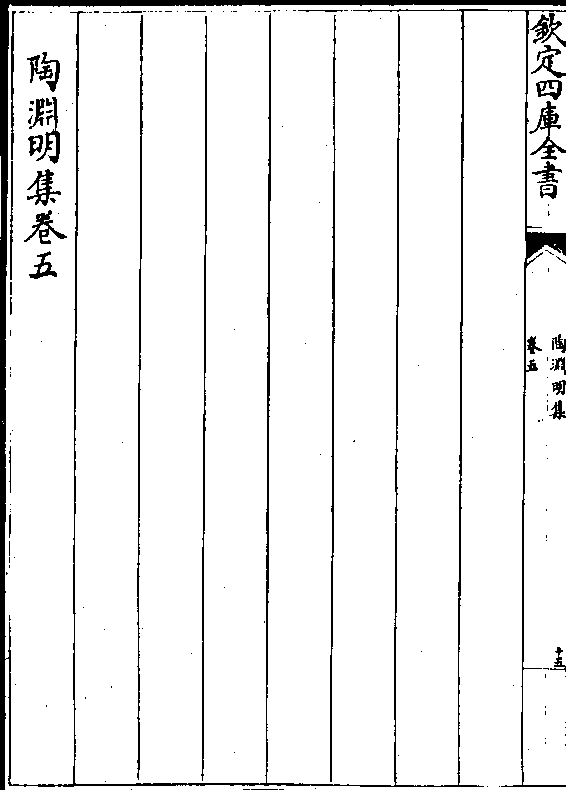 欽定四庫全書
陶淵明集
卷五
十五
陶淵明集卷五